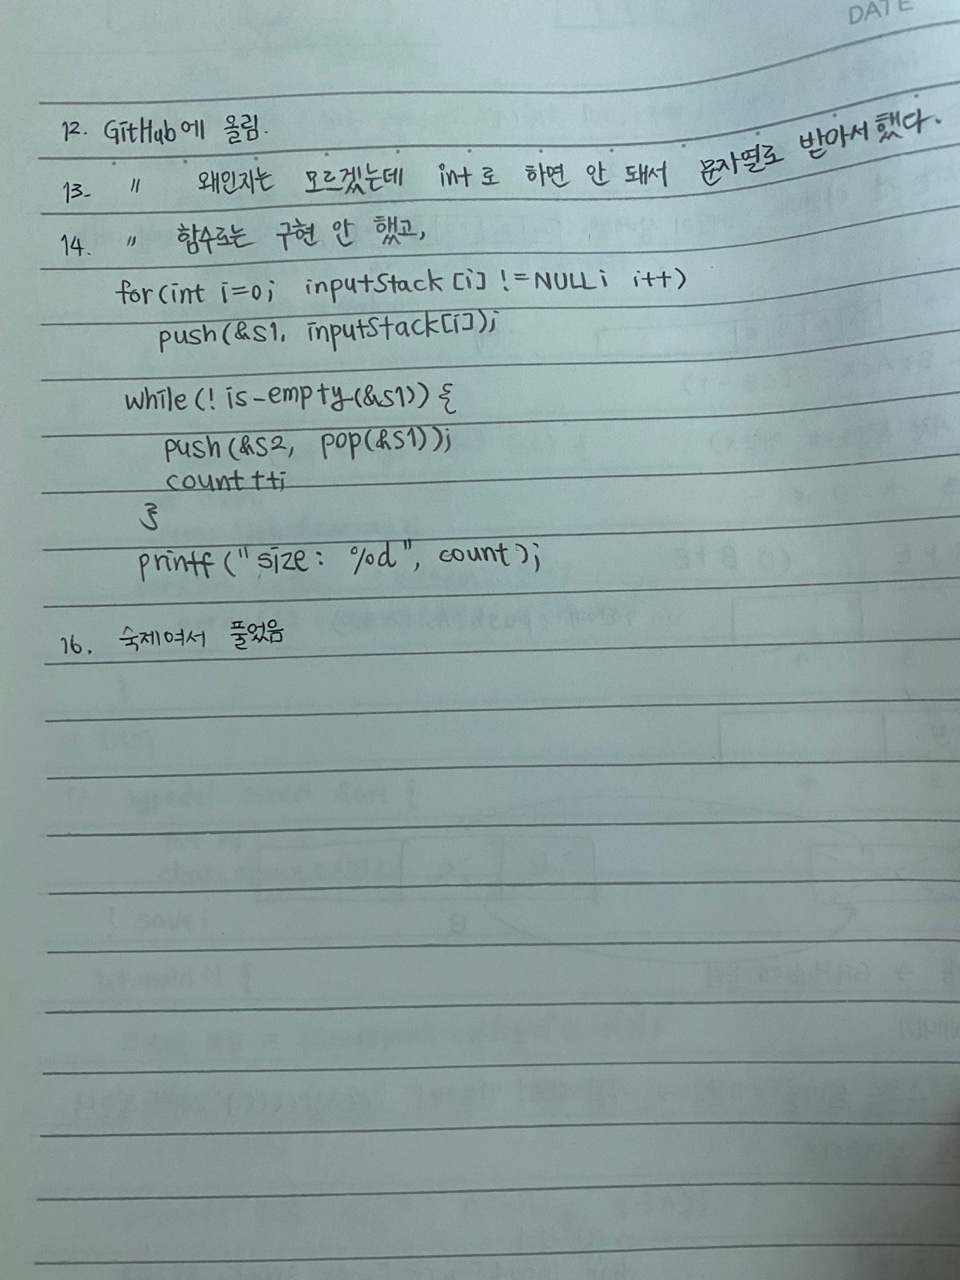 DATE
12. GitHub에 올림.
13. 〃 왜인지는 모르겠는데 int로 하면 안 돼서 문자열로 받아서 했다.
14. 〃 함수로는 구현 안 했고,
for(int i=0; inputStack[i] !=NULL; i++)
push(&s1, inputStack[i]);
while(! is-empty(&s1)) {
push(&s2, pop(&s1));
count++;
}
printf("size: %d", count);
16. 숙제여서 풀었음